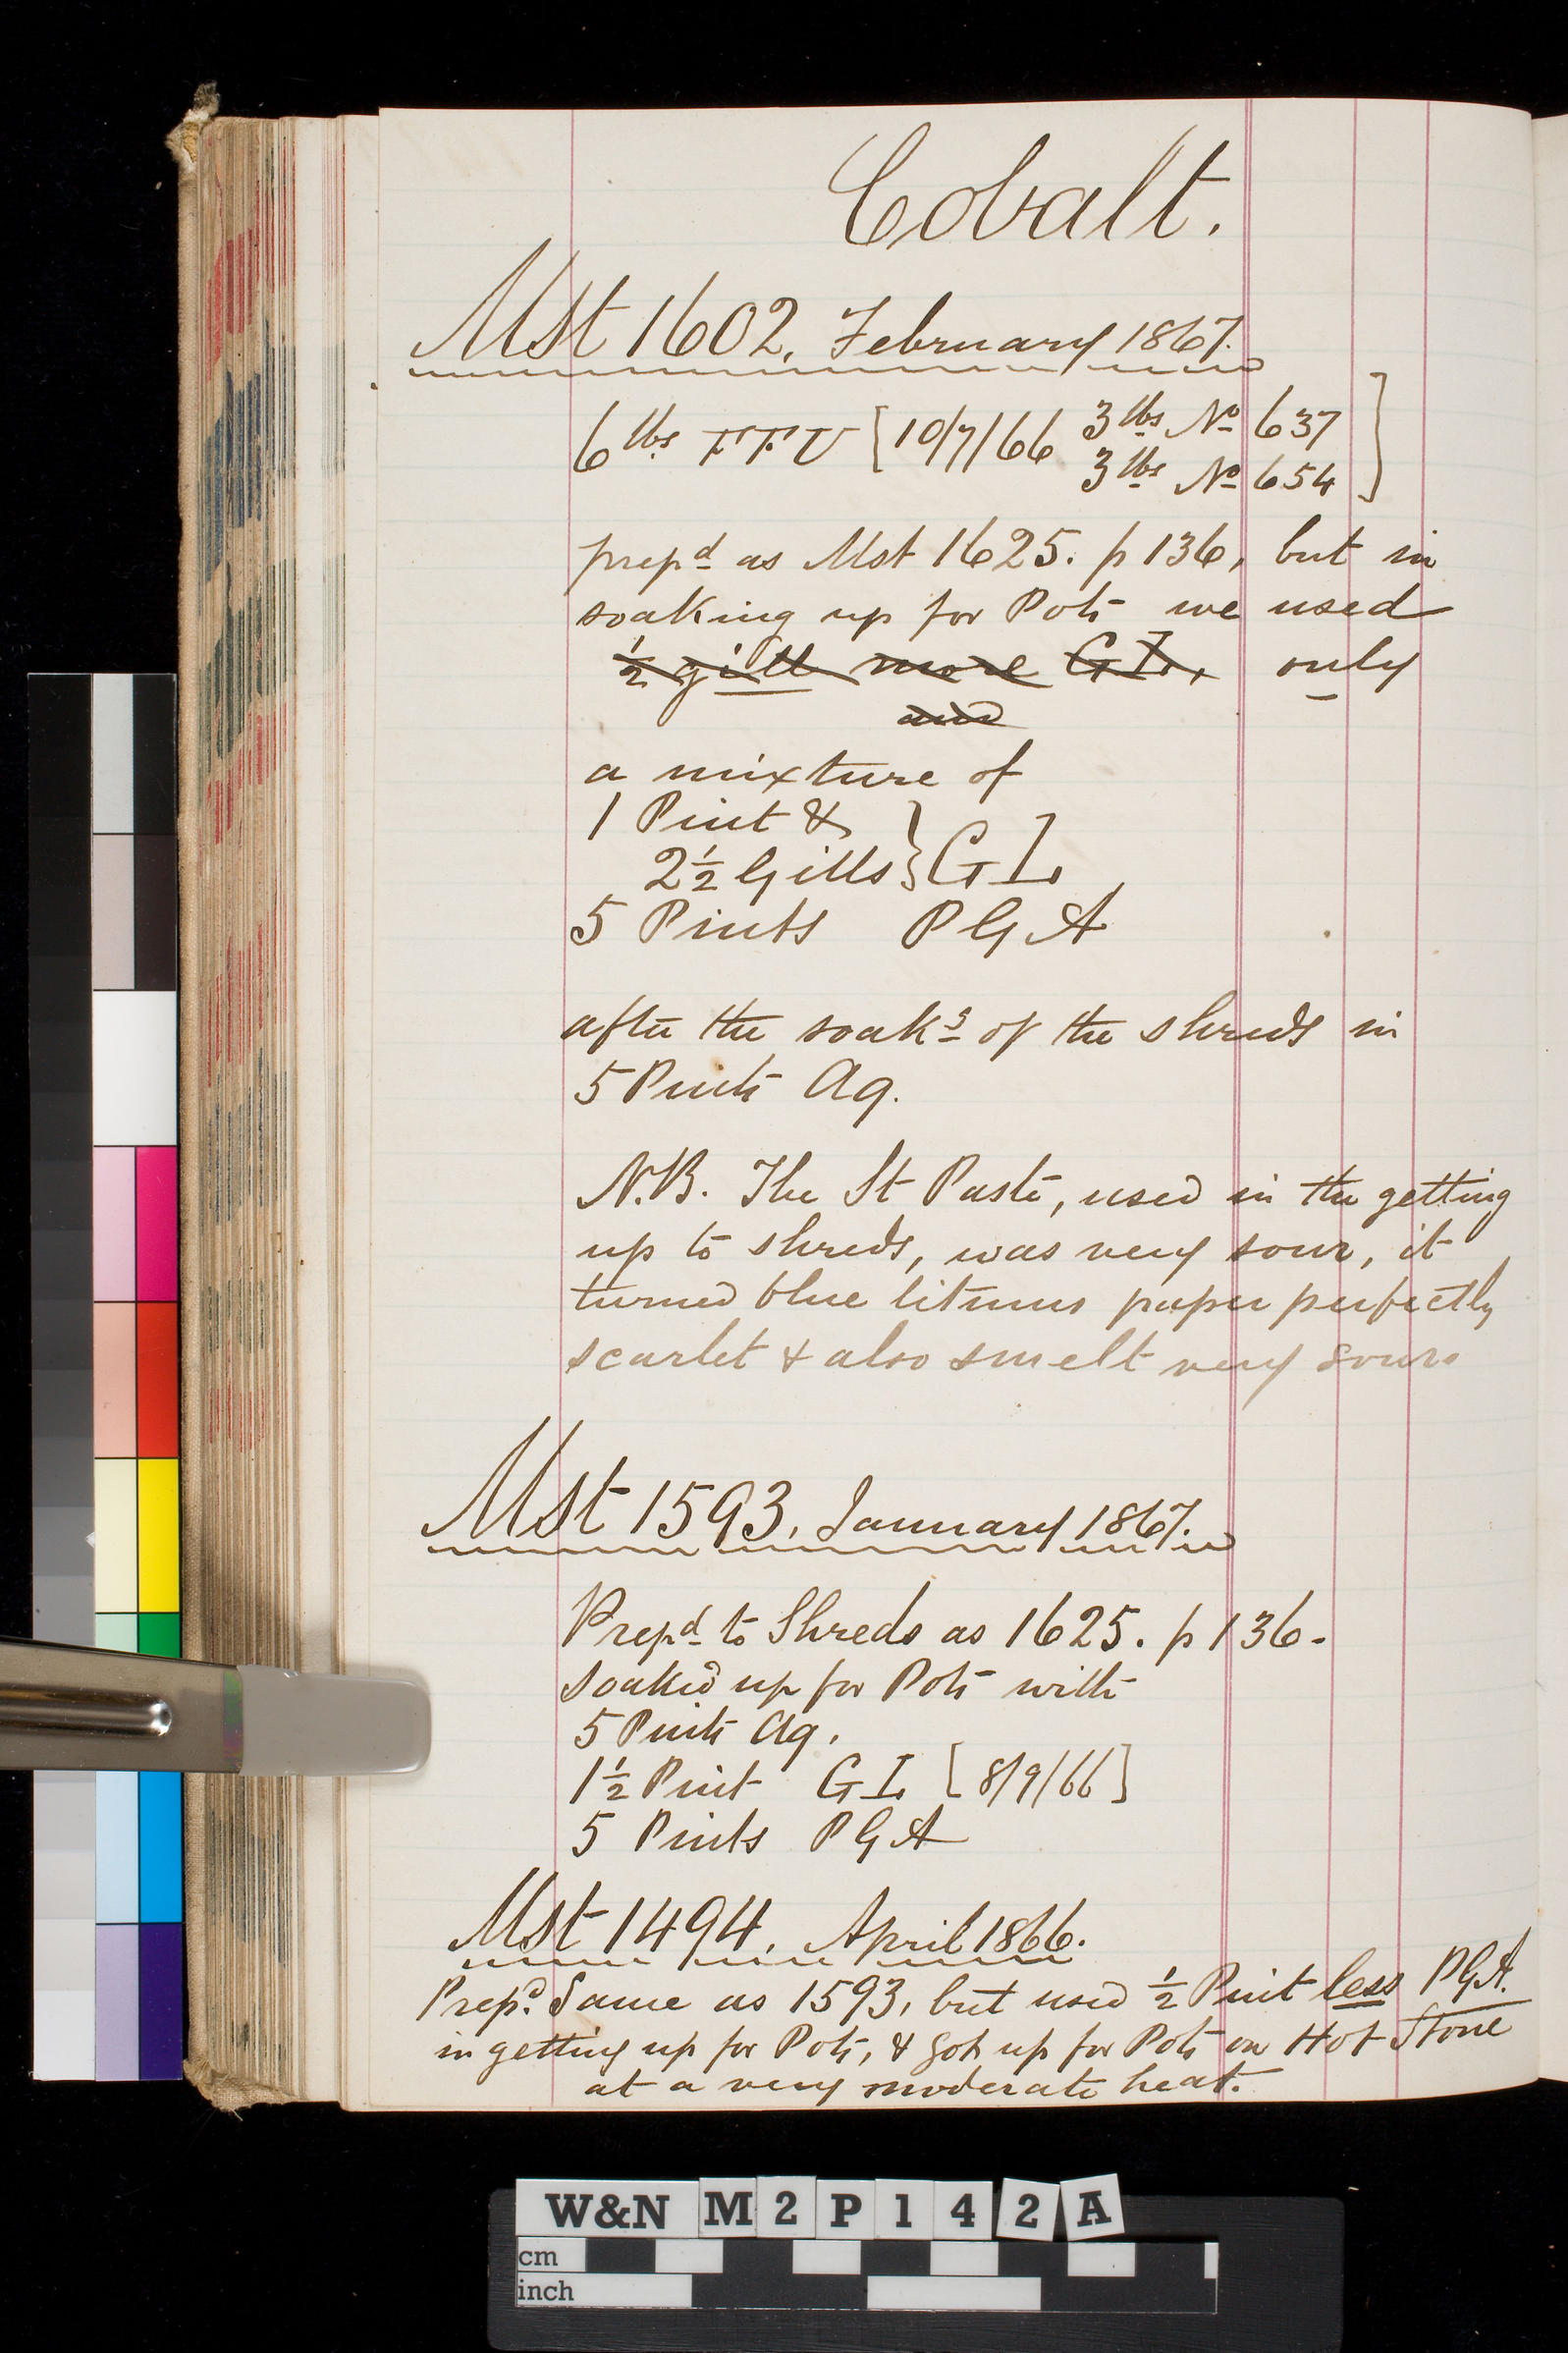 Cobalt.
Mst 1602. February 1867.
6 lbs FFU [10/7/66 3 lbs No 637
3 lbs No 654]
prepd as Mst 1625. p 136, but in
soaking up for Pots we used
½ gill more GI, only
and
a mixture of
1 Pint &
2½ Gills } GI
5 Pints PGA
after the soakg of the shreds in
5 Pints Aq.
N.B. The St Paste, used in the getting
up to shreds, was very sour, it
turned blue litmus paper perfectly
scarlet & also smelt very sour.
Mst 1593. January 1867.
Prepd to Shreds as 1625. p 136.
soaked up for Pots with
5 Pints Aq.
1½ Pint GI [8/9/66]
5 Pints PGA
Mst 1494. April 1866.
Prepd Same as 1593, but used ½ Pint less PGA.
in getting up for Pots, & got up for Pots on Hot Stone
at a very moderate heat.
W&N M2P142A
cm
inch